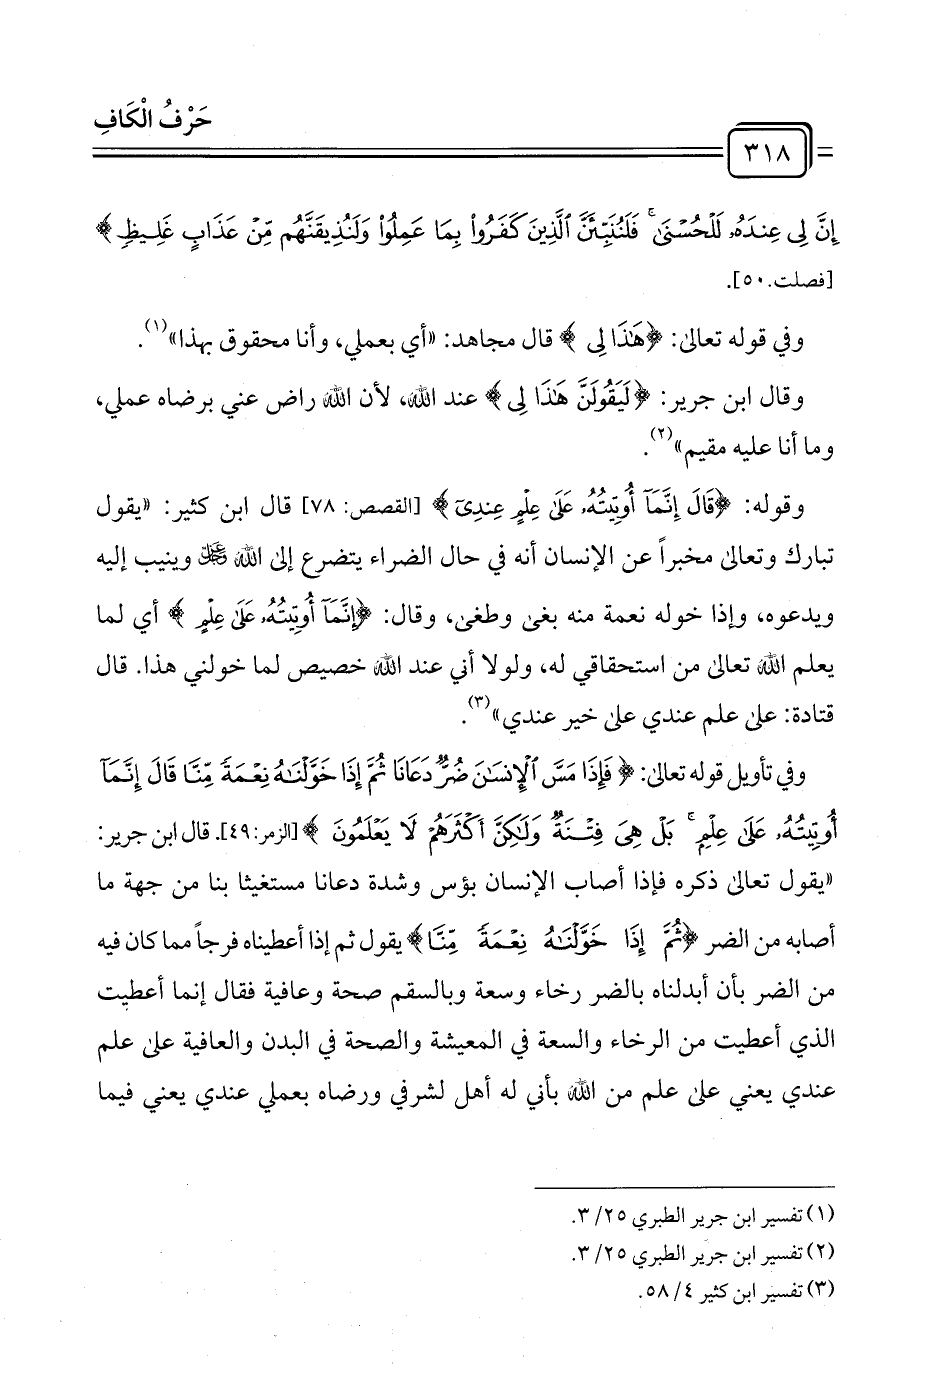 حَرْفُ الْكَافِ
٣١٨
إِنَّ لِى عِندَهُۥ لَلْحُسْنَىٰ ۚ فَلَنُنَبِّئَنَّ ٱلَّذِينَ كَفَرُوا۟ بِمَا عَمِلُوا۟ وَلَنُذِيقَنَّهُم مِّنْ عَذَابٍ غَلِيظٍ ﴾
[فصلت.٥٠].
وفي قوله تعالىٰ: ﴿هَٰذَا لِى ﴾ قال مجاهد: «أي بعملي، وأنا محقوق بهذا»(١).
وقال ابن جرير: ﴿لَيَقُولَنَّ هَٰذَا لِى﴾ عند الله، لأن الله راض عني برضاه عملي،
وما أنا عليه مقيم»(٢).
وقوله: ﴿قَالَ إِنَّمَآ أُوتِيتُهُۥ عَلَىٰ عِلْمٍ عِندِىٓ﴾ [القصص: ٧٨] قال ابن كثير: «يقول
تبارك وتعالىٰ مخبراً عن الإنسان أنه في حال الضراء يتضرع إلى الله ﷻ وينيب إليه
ويدعوه، وإذا خوله نعمة منه بغى وطغى، وقال: ﴿إِنَّمَآ أُوتِيتُهُۥ عَلَىٰ عِلْمٍ ﴾ أي لما
يعلم الله تعالىٰ من استحقاقي له، ولولا أني عند الله خصيص لما خولني هذا. قال
قتادة: علىٰ علم عندي علىٰ خير عندي»(٣).
وفي تأويل قوله تعالىٰ: ﴿ فَإِذَا مَسَّ ٱلْإِنسَٰنَ ضُرٌّ دَعَانَا ثُمَّ إِذَا خَوَّلْنَٰهُ نِعْمَةً مِّنَّا قَالَ إِنَّمَآ
أُوتِيتُهُۥ عَلَىٰ عِلْمٍۭ ۚ بَلْ هِىَ فِتْنَةٌ وَلَٰكِنَّ أَكْثَرَهُمْ لَا يَعْلَمُونَ ﴾ [الزمر:٤٩]. قال ابن جرير:
«يقول تعالىٰ ذكره فإذا أصاب الإنسان بؤس وشدة دعانا مستغيثا بنا من جهة ما
أصابه من الضر ﴿ثُمَّ إِذَا خَوَّلْنَٰهُ نِعْمَةً مِّنَّا﴾ يقول ثم إذا أعطيناه فرجاً مما كان فيه
من الضر بأن أبدلناه بالضر رخاء وسعة وبالسقم صحة وعافية فقال إنما أعطيت
الذي أعطيت من الرخاء والسعة في المعيشة والصحة في البدن والعافية علىٰ علم
عندي يعني علىٰ علم من الله بأني له أهل لشرفي ورضاه بعملي عندي يعني فيما
(١) تفسير ابن جرير الطبري ٢٥/ ٣.
(٢) تفسير ابن جرير الطبري ٢٥/ ٣.
(٣) تفسير ابن كثير ٤/ ٥٨.